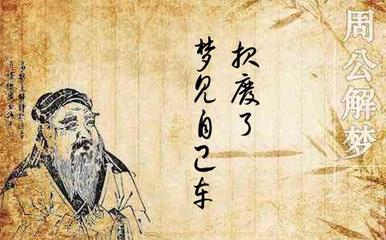 周公解梦
报废了
梦见自己车